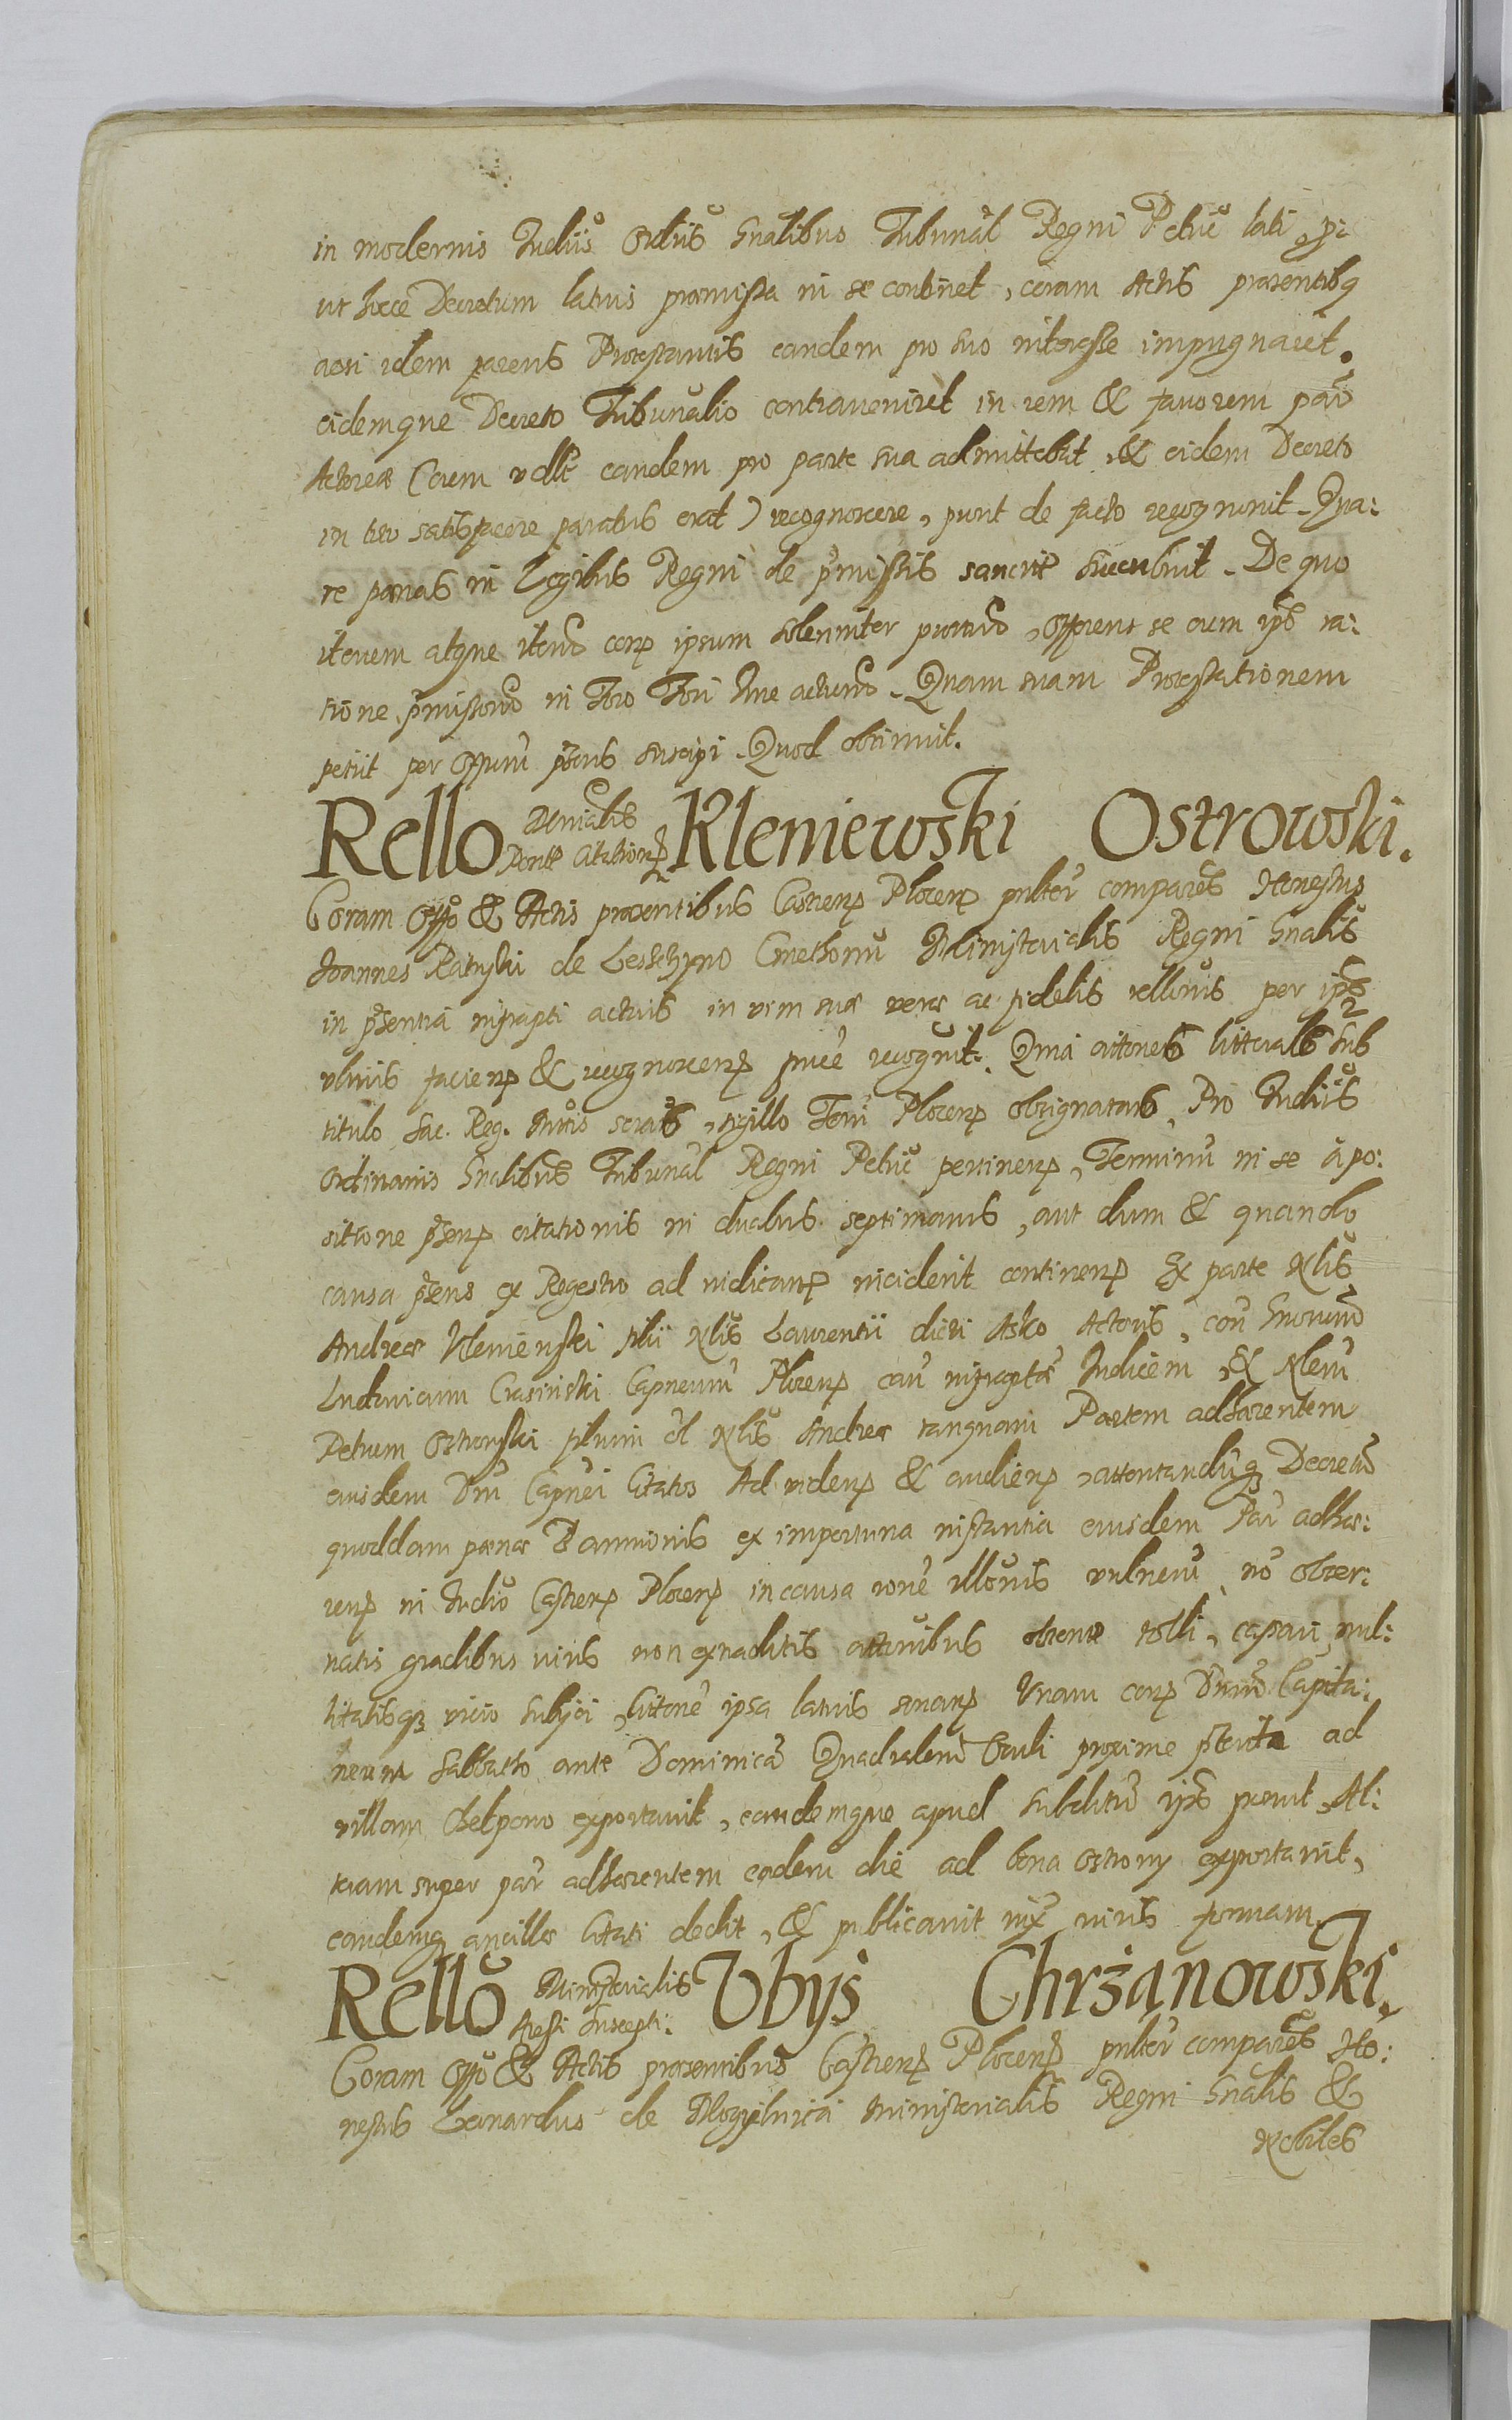 in modernis Iudiis Ordiis Gnalibus Tribunal Regni Petric lati
ut hocce Decretum latius praemissa in se continet, coram Actis praesentibq
acsi idem parens Protestantis eandem pro suo interesse impugnaret.
eidemque Decreto Tribunalio contraveniret in rem & favorem par
Actorea (cum eandem pro parte sua admittebat & eidem Decreto
in toto satisfacere paratus erat) recognoscere, prout de facto recognovit. Qua:
re paenas in Legibus Regni de pmissis sancit succubuit. De quo
iterum atque iteru conp ipsum solenniter protatur, offerens se cum ipo ra:
tione pmissoru in Foro Fori Iure acturu. Quam suam Protestationem
petiit per Offum pbens suscipi. Quod obtinuit.
Rello Menialis Posite Citationp Kleniewski Ostrowski.
Coram Offo & Actis praesentibus Castrenp Plocenp pnlter comparens Honestus
Ioannes Ratynski de Leskzyno Cmethonu Ministerialis Regni Gnalis
in psentia infrapti actus in vim suae verae ac fidelis rellonis per ips
ulmis facienp & recognoscenp puce recognit. Quia citones litterales sub
titulo Sac. Reg. Mttis scratas, sigillo Terri Plocenp obsignatas, Pro Iudiis
Ordinariis Gnalibus Tribunal Regni Petric pertinenp, Terminu in se a po:
sitione psenp citationis in duabus septimanis, aut dum & quando
causa psens ex Regestro ad iudicanp inciderit continenp Ex parte Nlis
Andreae Klenienski filii Nlis Laurentii dicti Asko Actoris, con Gnorum
Ludovicum Crasinski Capneum Plocenp cau infraptae Iudicem & Nlem
Petrum Ostrowski filium ol Nlis Andreae tanquam Partem adhaerentem
eiusdem Dni Capnei Citatos Ad videnp & audienp, attentandumq Decretu
quoddam paenae Bannionis ex importuna instantia eiusdem Par adhae:
renp in Iudio Castrenp Plocenp in causa rone illonis vulneru, no obser:
vatis gradibus iuris non exaditis attinibus obtente tolli, cassari, nul:
litatisq vicio subijci, cittone ipsa latius sonanp Unam conp Dnum Capita:
neum Sabbatho ante Dominica Quadralem Oculi proxime pterita ad
villam Chelpowo exportavit, eandemque apud subditu ips posuit. Al:
teram super par adhaerentem eodem die ad bona Ostrowy exportavit,
eandemq ancillae Citati dedit, & publicavit iux iuris formam.
Rello Ministerialis Aresti Suscepti. Vbyś Chrzanowski.
Coram Offo & Actis praesentibus Castrenp Plocenp pnlter comparens Ho:
nestus Leonardus de Mogyelnica Ministerialis Regni Gnalis &
Nobiles